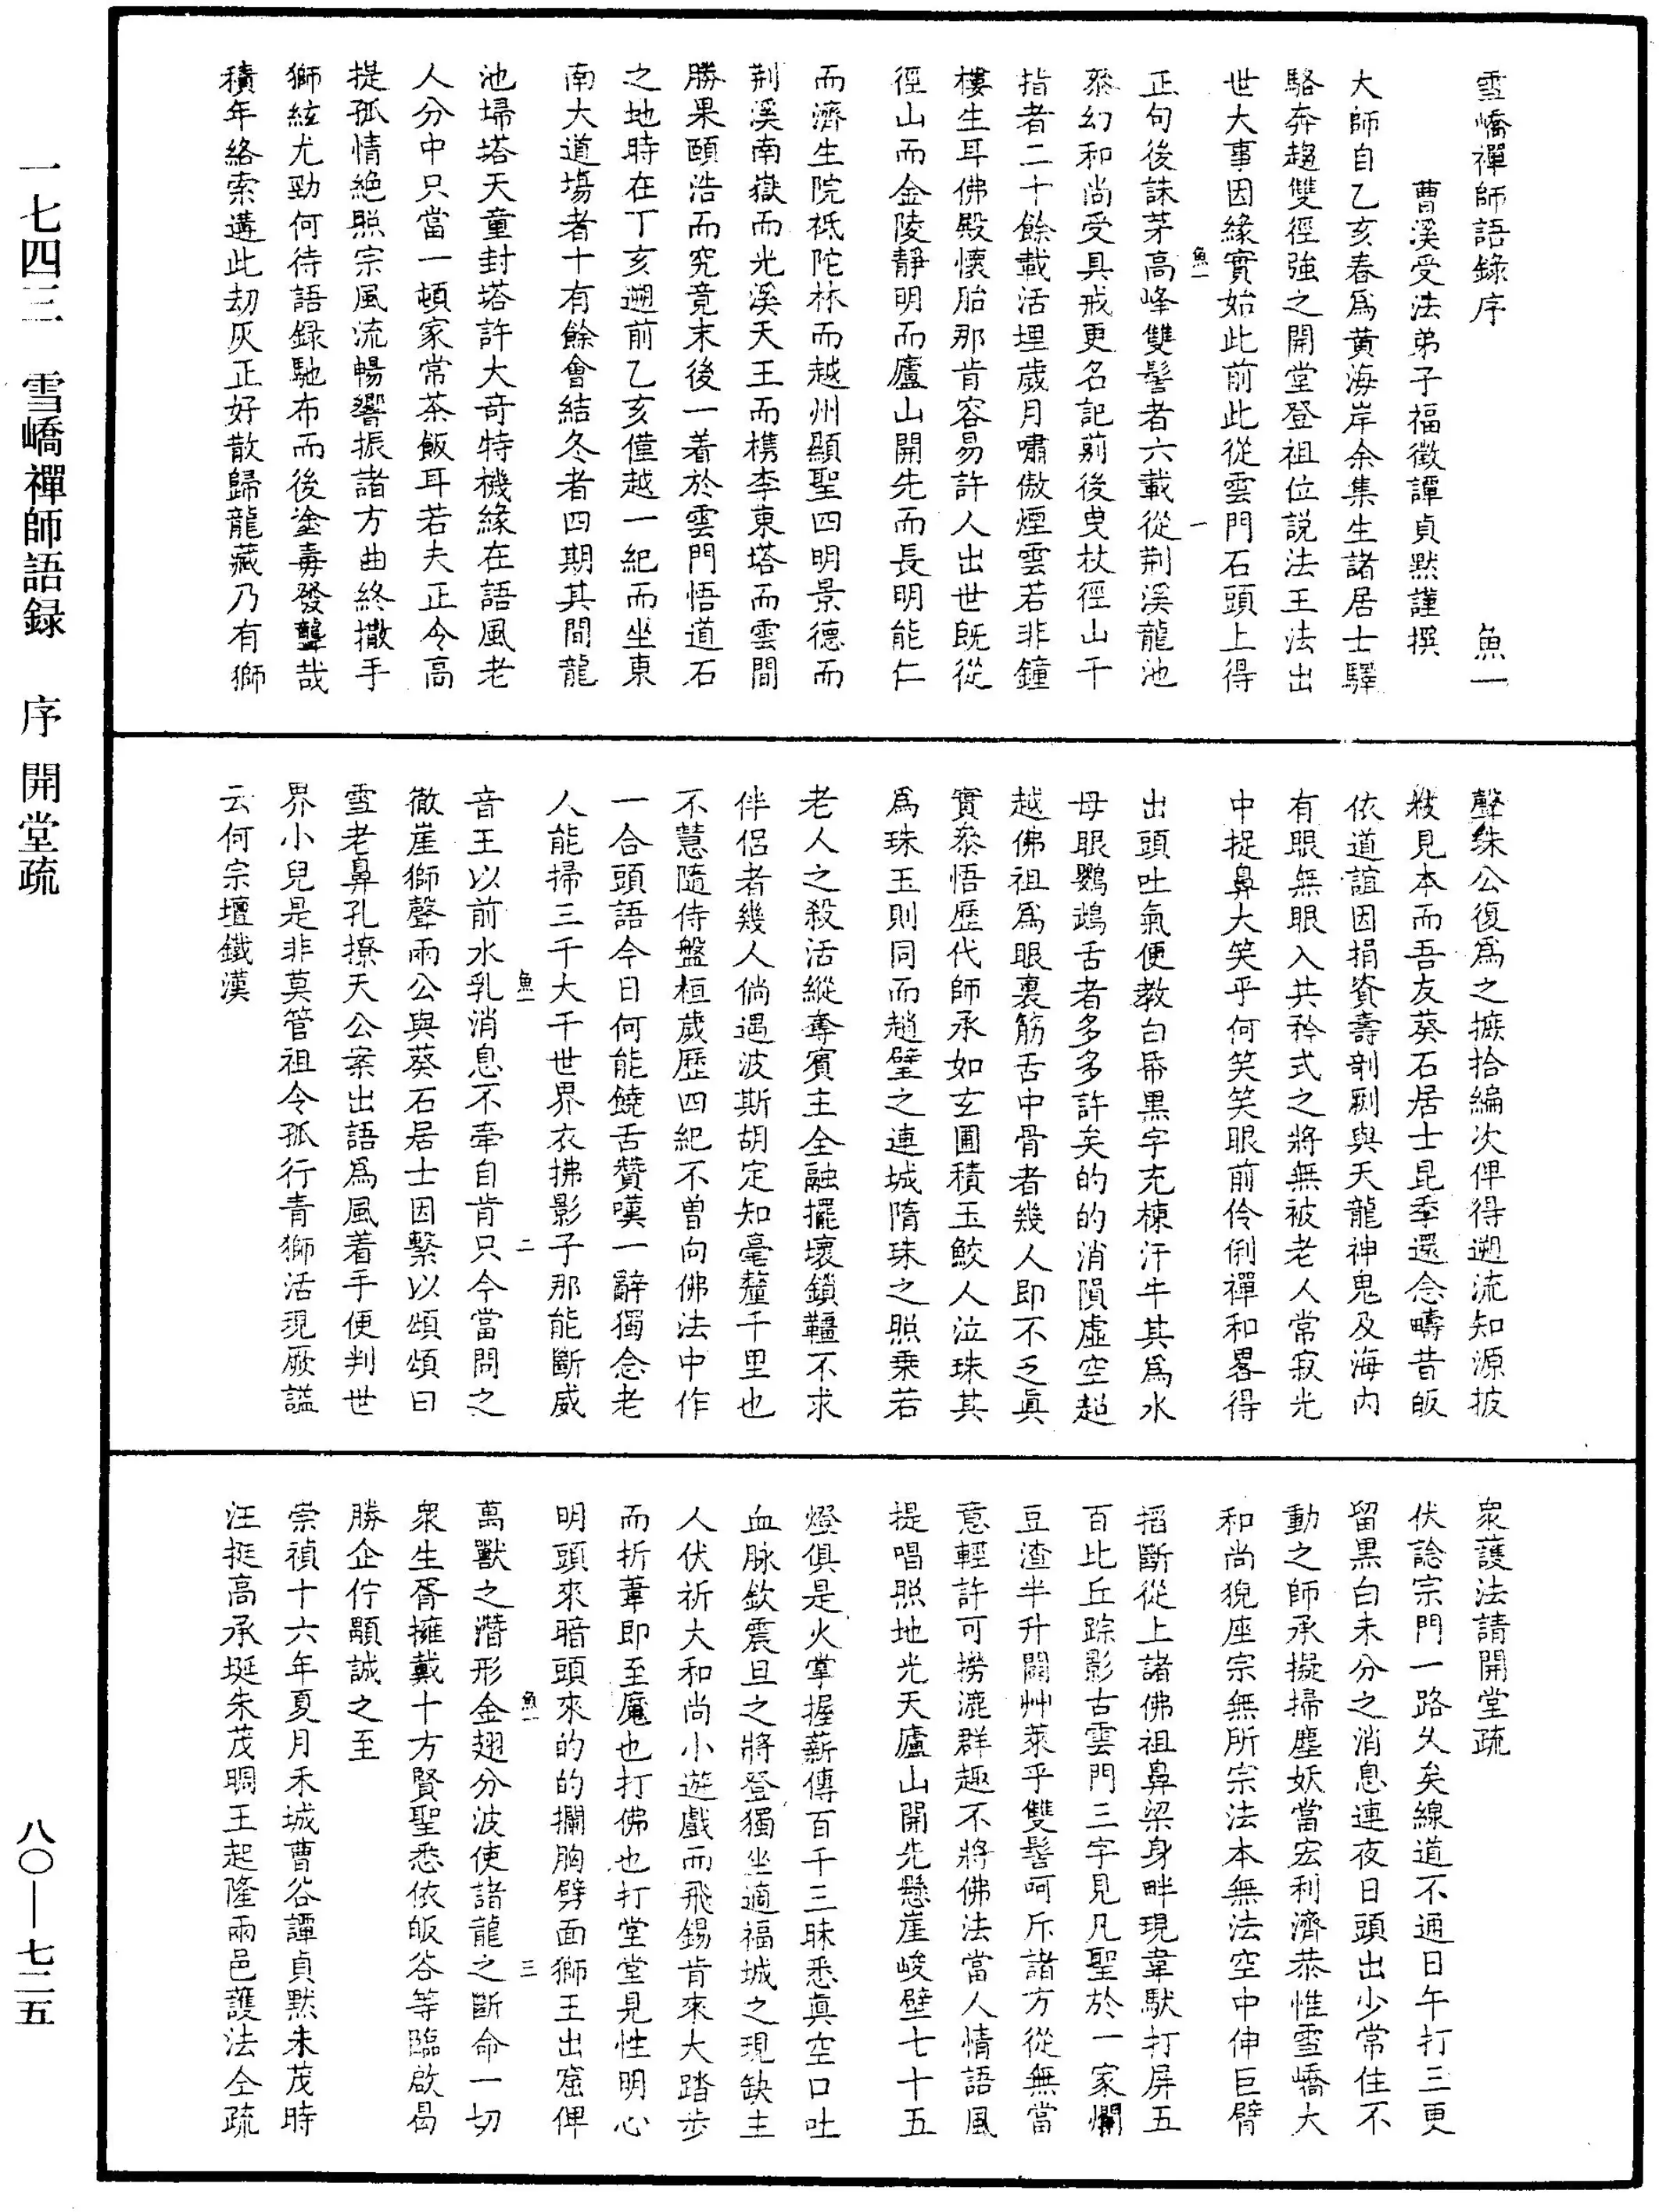 雪嶠禪師語錄序　魚一
曹溪受法弟子福徵譚貞默謹撰
大師自乙亥春為黃海岸余集生諸居士驛
駱奔趨雙徑強之開堂登祖位說法王法出
世大事因緣實始此前此從雲門石頭上得
正句後誅茅高峰雙髻者六載從荆溪龍池
叅幻和尚受具戒更名記莂後曳杖徑山千
指者二十餘載活埋歲月嘯傲煙雲若非鐘
樓生耳佛殿懷胎那肯容易許人出世既從
徑山而金陵靜明而廬山開先而長明能仁
而濟生院祇陀林而越州顯聖四明景德而
荆溪南嶽而光溪天王而檇李東塔而雲間
勝果頤浩而究竟末後一着於雲門悟道石
之地時在丁亥遡前乙亥僅越一紀而坐東
南大道場者十有餘會結冬者四期其間龍
池埽塔天童封塔許大奇特機緣在語風老
人分中只當一頓家常茶飯耳若夫正令高
提孤情絶照宗風流暢響振諸方曲終撒手
獅絃尤勁何待語錄馳布而後塗毒發聾哉
積年絡索遘此刧灰正好散歸龍藏乃有獅
魚一　一
聲絑公復為之摭拾編次俾得遡流知源披
裓見本而吾友葵石居士昆季還念疇昔皈
依道誼因捐資壽剞劂與天龍神鬼及海内
有眼無眼入共矜式之將無被老人常寂光
中捉鼻大笑乎何笑笑眼前伶俐禪和畧得
出頭吐氣便教白帋黑字充棟汗牛其為水
母眼鸚鵡舌者多多許矣的的消隕虛空超
越佛祖為眼裏筋舌中骨者幾人即不乏真
實叅悟歷代師承如玄圃積玉鮫人泣珠其
為珠玉則同而趙璧之連城隋珠之照乘若
老人之殺活縱奪賓主全融擺壞鎖韁不求
伴侶者幾人倘遇波斯胡定知毫釐千里也
不慧隨侍盤桓歲歷四紀不曾向佛法中作
一合頭語今日何能饒舌贊嘆一辭獨念老
人能掃三千大千世界衣拂影子那能斷威
音王以前水乳消息不牽自肯只今當問之
徹崖獅聲兩公與葵石居士因繫以頌頌曰
雪老鼻孔撩天公案出語為風着手便判世
界小兒是非莫管祖令孤行青獅活現厥諡
云何宗壇鐵漢
魚一　二
衆護法請開堂疏
伏諗宗門一路久矣線道不通日午打三更
留黑白未分之消息連夜日頭出少常住不
動之師承擬掃塵妖當宏利濟恭惟雪嶠大
和尚猊座宗無所宗法本無法空中伸巨臂
搯斷從上諸佛祖鼻梁身畔現韋馱打屏五
百比丘踪影古雲門三字見凡聖於一家爛
豆渣半升鬭艸萊乎雙髻呵斥諸方從無當
意輕許可撈漉群趣不將佛法當人情語風
提唱照地光天廬山開先懸崖峻壁七十五
燈俱是火掌握薪傳百千三昧悉真空口吐
血脉欽震旦之將登獨坐適福城之現缺主
人伏祈大和尚小遊戲而飛錫肯來大踏步
而折葦即至魔也打佛也打堂堂見性明心
明頭來暗頭來的的攔胸劈面獅王出窟俾
萬獸之潛形金翅分波使諸龍之斷命一切
衆生胥擁戴十方賢聖悉依皈谷等臨啟曷
勝企佇顒誠之至
崇禎十六年夏月禾城曹谷譚貞默朱茂時
汪挺高承埏朱茂晭王起隆兩邑護法仝疏
魚一　三
一七四三　雪嶠禪師語録　序　開堂疏
八〇—七二五